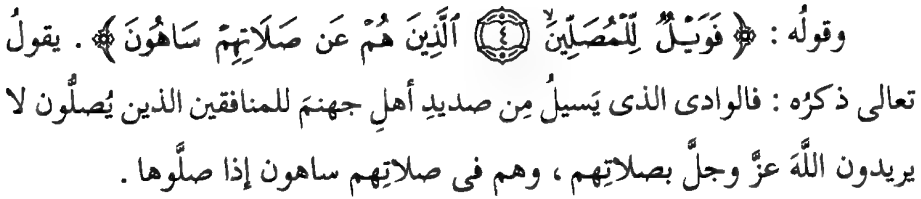 وقولُه : ﴿ فَوَيْلٌ لِّلْمُصَلِّينَ ﴿٤﴾ ٱلَّذِينَ هُمْ عَن صَلَاتِهِمْ سَاهُونَ ﴾ . يقولُ
تعالى ذكرُه : فالوادى الذى يَسيلُ مِن صديدِ أهلِ جهنمَ للمنافقين الذين يُصلُّون لا
يريدون اللَّهَ عزَّ وجلَّ بصلاتِهم ، وهم فى صلاتِهم ساهون إذا صلَّوها .